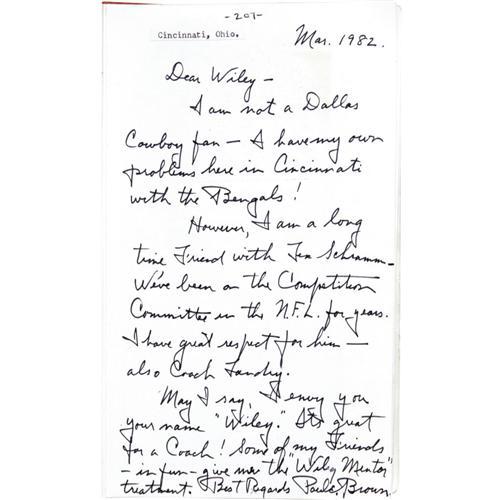 -207-
Cincinnati, Ohio.
Mar. 1982.
Dear Wiley -
I am not a Dallas
Cowboy fan - I have my own
problems here in Cincinnati
with the Bengals!
However, I am a long
time Friend with Tex Schramm -
We've been on the Competition
Committee in the N.F.L. for years.
I have great respect for him -
also Coach Landry.
May I say, I envy you
your name "Wiley." It's great
for a Coach! Some of my Friends
- in fun - give me the "Wily Mentor"
treatment. Best Regards Paul Brown.